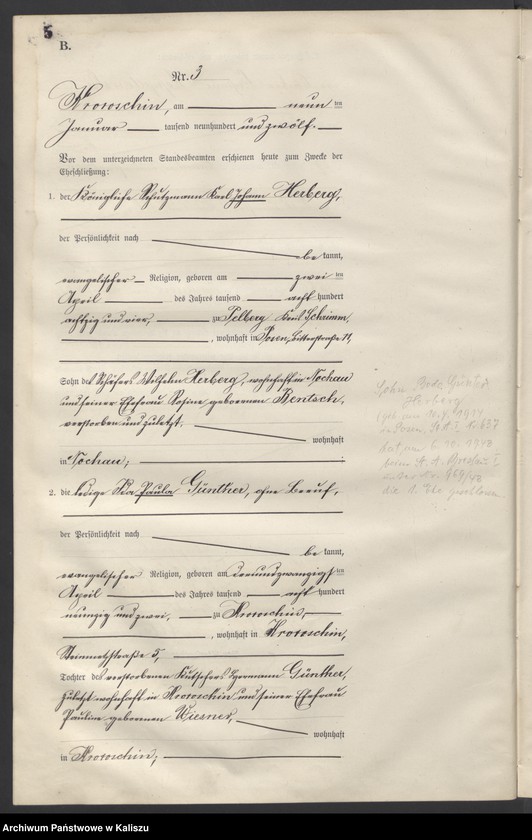 5
B.
Nr. 3
Krotoschin, am neun ten
Januar tausend neunhundert und zwölf.
Vor dem unterzeichneten Standesbeamten erschienen heute zum Zwecke der
Eheschließung:
1. der Königliche Schutzmann Karl Johann Herberg,
der Persönlichkeit nach
be kannt,
evangelischer Religion, geboren am zwei ten
April des Jahres tausend acht hundert
achtzig und vier, zu Felberg Kreis Schrimm,
, wohnhaft in Posen, Ritterstraße 11,
Sohn des Schäfers Wilhelm Herberg, wohnhaft in Nochau
und seiner Ehefrau Rosine geborenen Rentsch,
verstorben und zuletzt, wohnhaft
in Nochau;
2. die ledige Ida Paula Günther, ohne Beruf,
der Persönlichkeit nach
be kannt,
evangelischer Religion, geboren am dreiundzwanzigst ten
April des Jahres tausend acht hundert
neunzig und zwei, zu Krotoschin,
, wohnhaft in Krotoschin,
Steinmetzstraße 5,
Tochter des verstorbenen Kutschers Hermann Günther,
zuletzt wohnhaft in Krotoschin und seiner Ehefrau
Pauline geborenen Wiesner,
wohnhaft
in Krotoschin;
Sohn Günter
Herberg
geb. am 1914
in Posen, St.A. I,
hat am 6.10. 1943
beim St. A. Breslau I
unter Nr. 969/43
die 1. Ehe geschlossen.
Archiwum Państwowe w Kaliszu